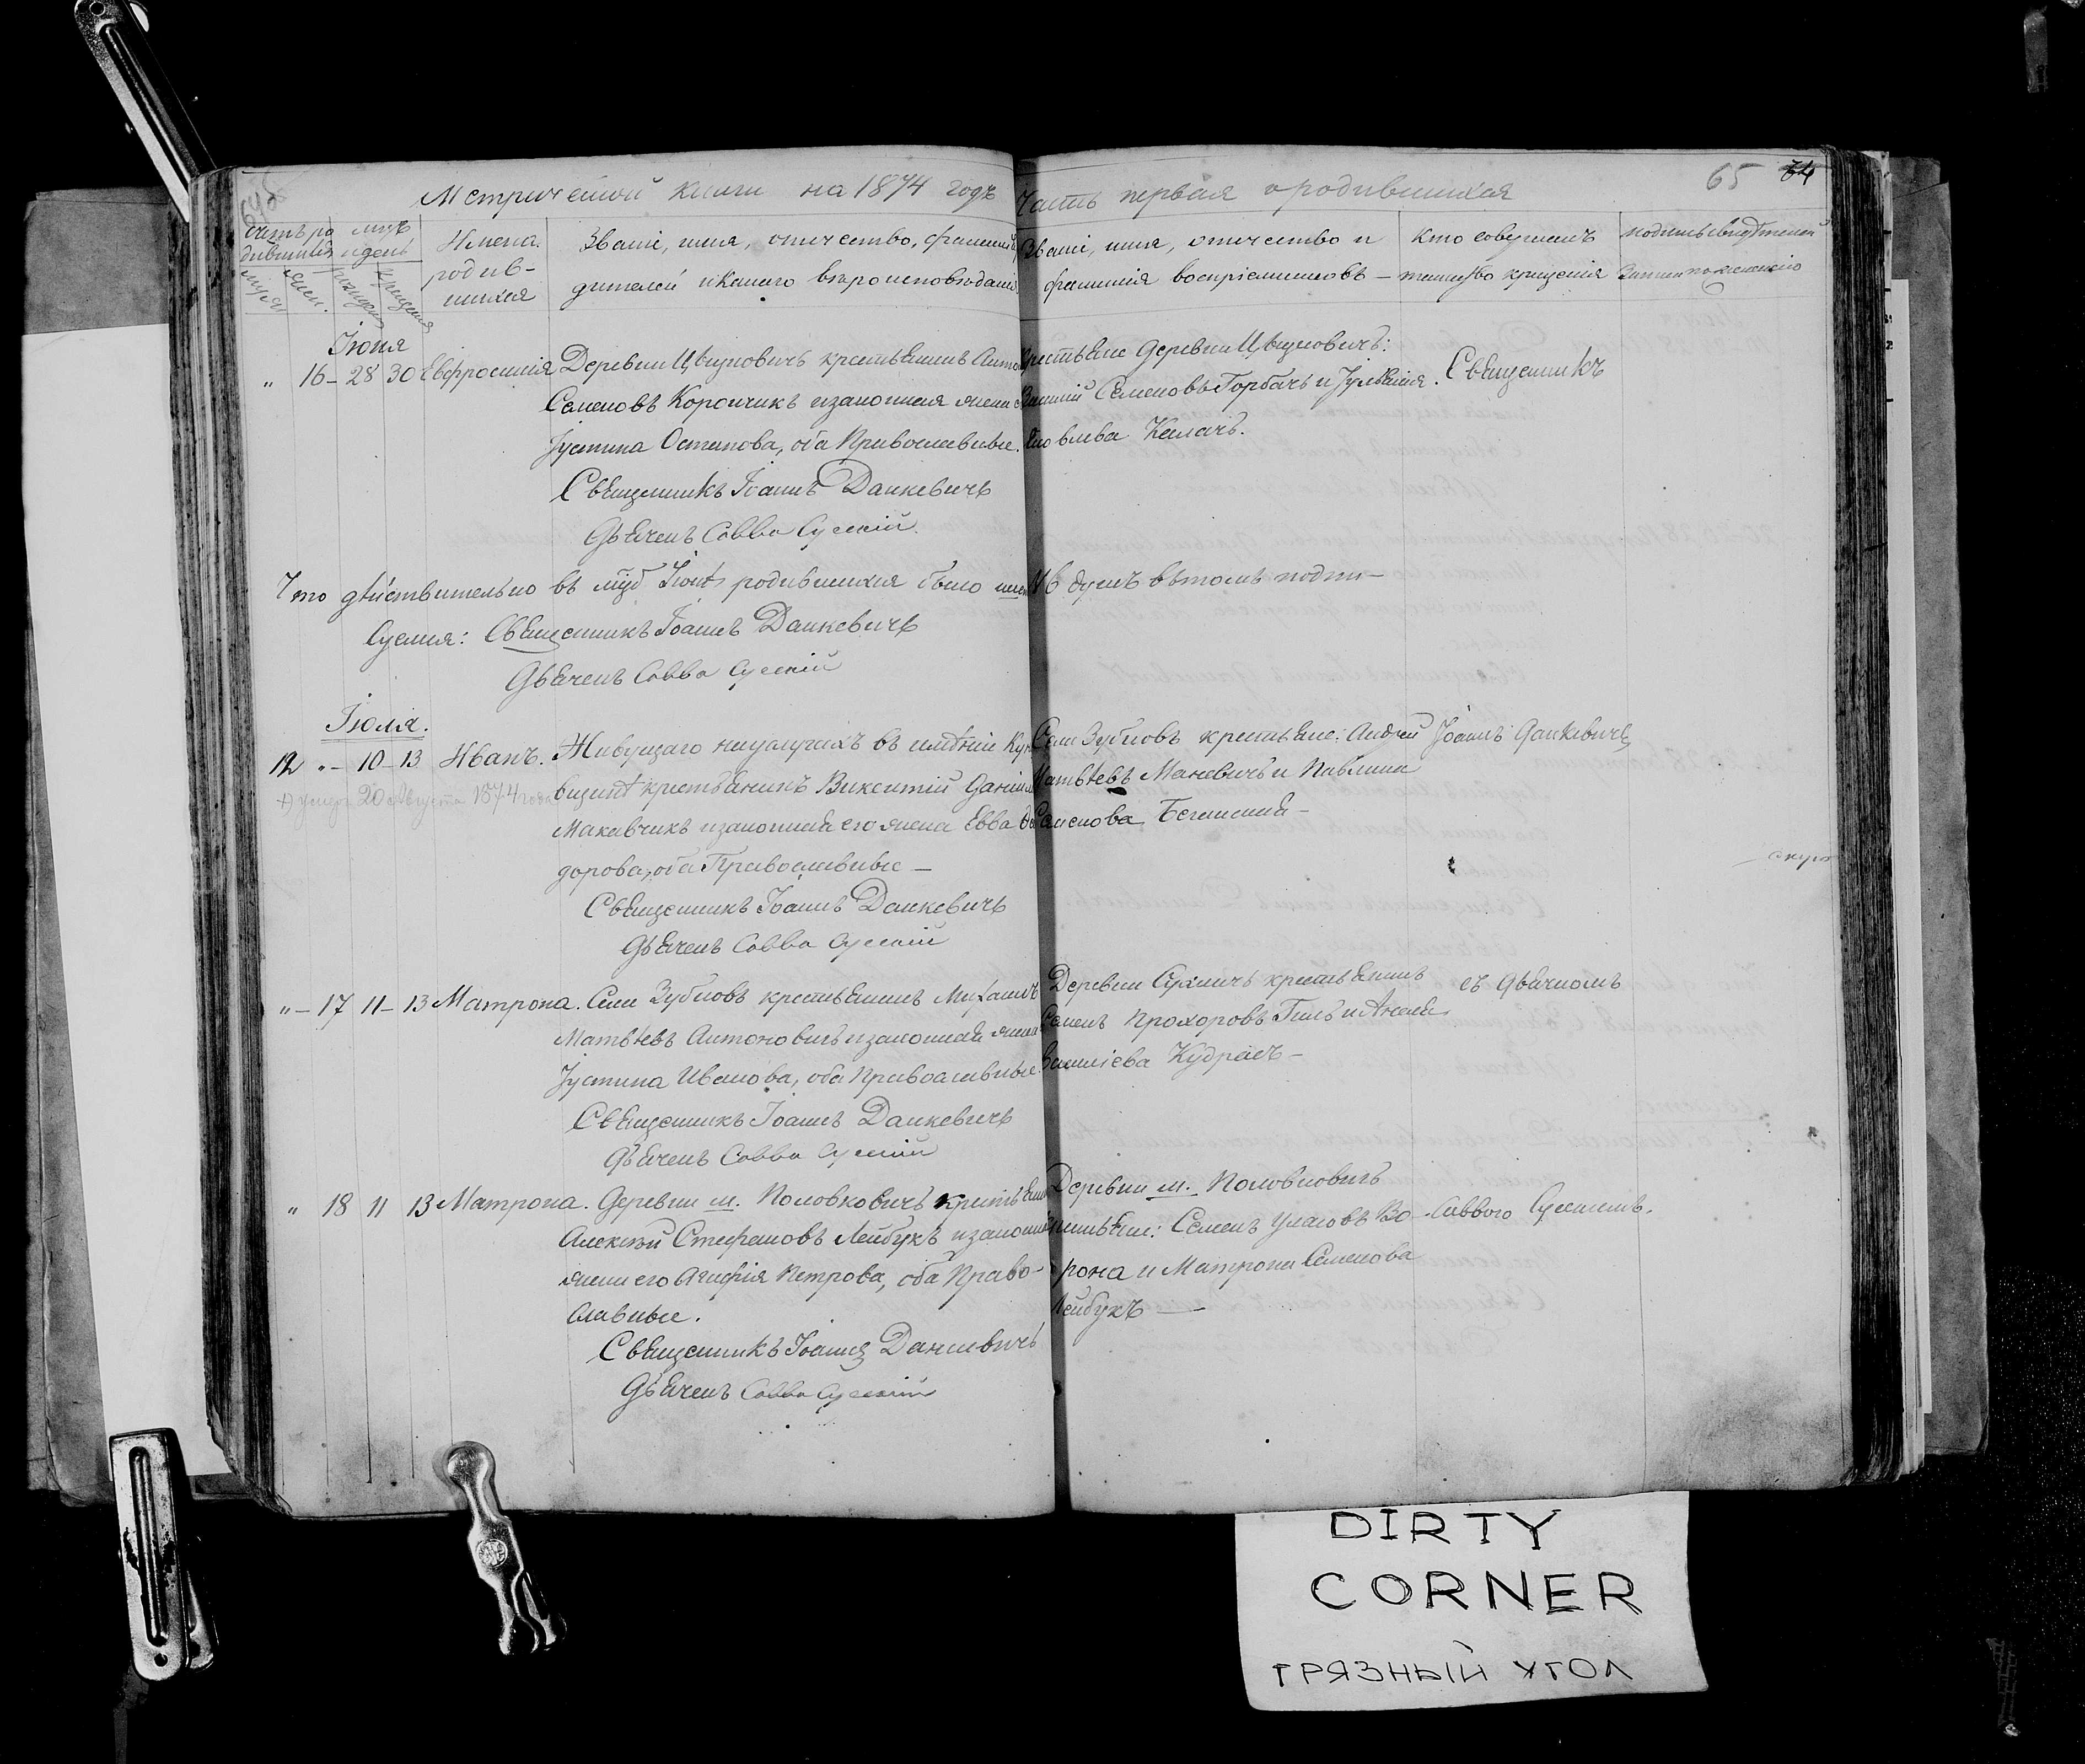 Метрической книги на 1874 годъ Часть первая о родившихся
65 34
Счетъ родившихся
муж.
жен.
Мцъ и день
рожденія
крещенія
Имена родив-
шихся
Званіе, имя, отчество, фамилія ро-
дителей и какого вѣроисповѣданія
Званіе, имя, отчество и
фамилія воспріемниковъ —
Кто совершалъ
таинство крещенія
Іюня
" 16 – 28 30 Евфросинія Деревни Цвыновичъ крестьянинъ
Семеновъ Корончикъ и законная жена
Іустина Остапова, оба Православные.
Священникъ Іоаннъ Данкевичъ
Дьячекъ Савва Сускій
Крестьяне деревни Цвыновичъ:
Василій Семеновъ Горбачъ и Іуліанія
Яковлева Калачъ.
Священникъ
Что дѣйствительно въ мцѣ Іюнѣ родившихся было душъ въ томъ подпи-
суемся: Священникъ Іоаннъ Данкевичъ
Дьячекъ Савва Сускій
Іюля.
12 " – 10 – 13 Иванъ. Живущаго на услугахъ въ имѣніи
крестьянинъ Викентій
Макавчикъ и законная его жена Евва Өе-
дорова, оба Православные —
умеръ 20 Августа 1874 года
Священникъ Іоаннъ Данкевичъ
Дьячекъ Савва Сускій
Села Зубковъ крестьяне: Андрей
Матвѣевъ Маневичъ и Павлина
Семенова
Іоаннъ Данкевичъ
" – 17 11 – 13 Матрона. Села Зубковъ крестьянинъ Михаилъ
Матвѣевъ Антоновичъ и законная жена
Іустина Иванова, оба Православные.
Священникъ Іоаннъ Данкевичъ
Дьячекъ Савва Сускій
Деревни Сухличъ крестьянинъ
Семенъ Прохоровъ Гиль и
Василіева Кудрасъ —
съ дьячкомъ
" 18 11 13 Матрона. Деревни м. Половковичъ крестьянинъ
Алексѣй Стефановъ Лейбукъ и законная
жена его Агафія Петрова, оба Право-
славные.
Священникъ Іоаннъ Данкевичъ
Дьячекъ Савва Сускій
Деревни м. Половковичъ
крестьяне: Семенъ Уласовъ Во-
рона и Матрона Семенова
Лейбукъ —
Саввою Сускимъ.
DIRTY
CORNER
ГРЯЗНЫЙ УГОЛ